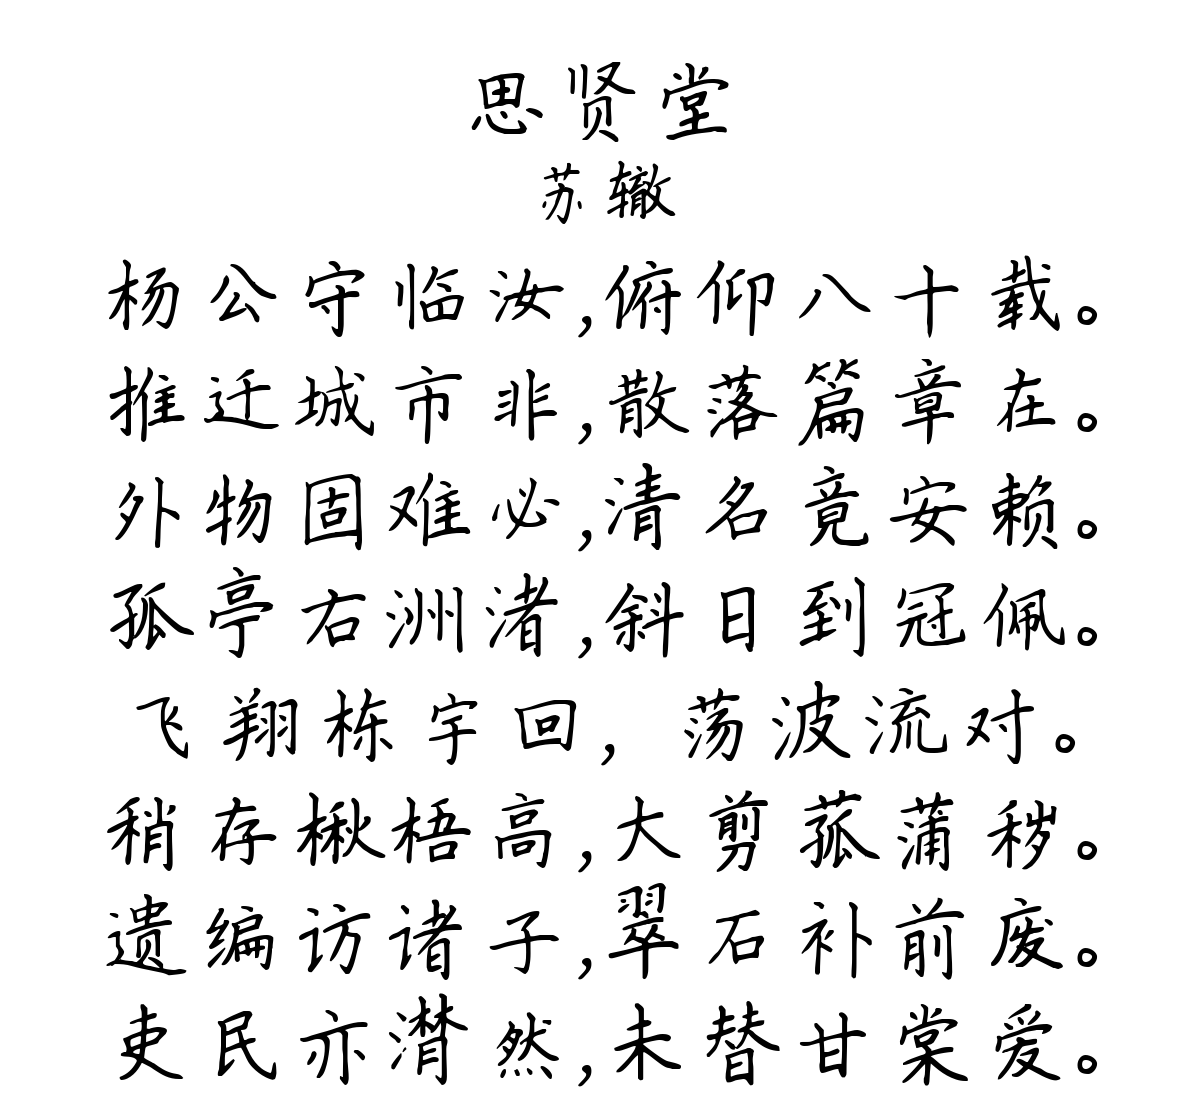 思贤堂
苏辙
杨公守临汝,俯仰八十载。
推迁城市非,散落篇章在。
外物固难必,清名竟安赖。
孤亭右洲渚,斜日到冠佩。
飞翔栋宇回,荡波流对。
稍存楸梧高,大剪菰蒲秽。
遗编访诸子,翠石补前废。
吏民亦潸然,未替甘棠爱。